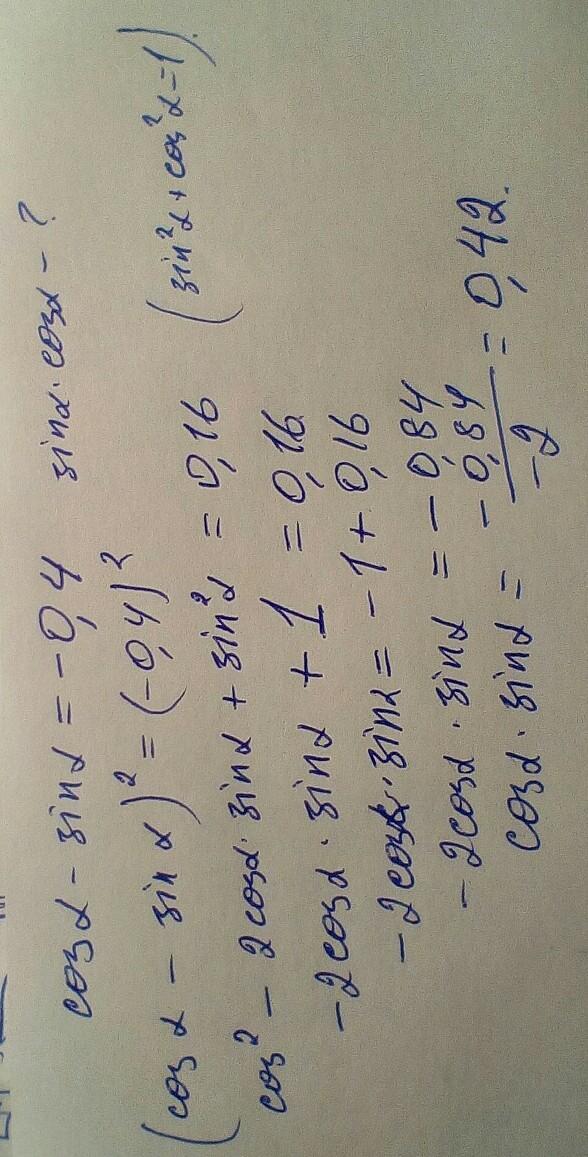 cosα - sinα = -0,4 sinα·cosα - ?
(cosα - sinα)² = (-0,4)² (sin²α + cos²α = 1).
cos² - 2cosα·sinα + sin²α = 0,16
-2cosα·sinα + 1 = 0,16
-2cosα·sinα = -1 + 0,16
-2cosα·sinα = -0,84
cosα·sinα = -0,84 / -2 = 0,42.